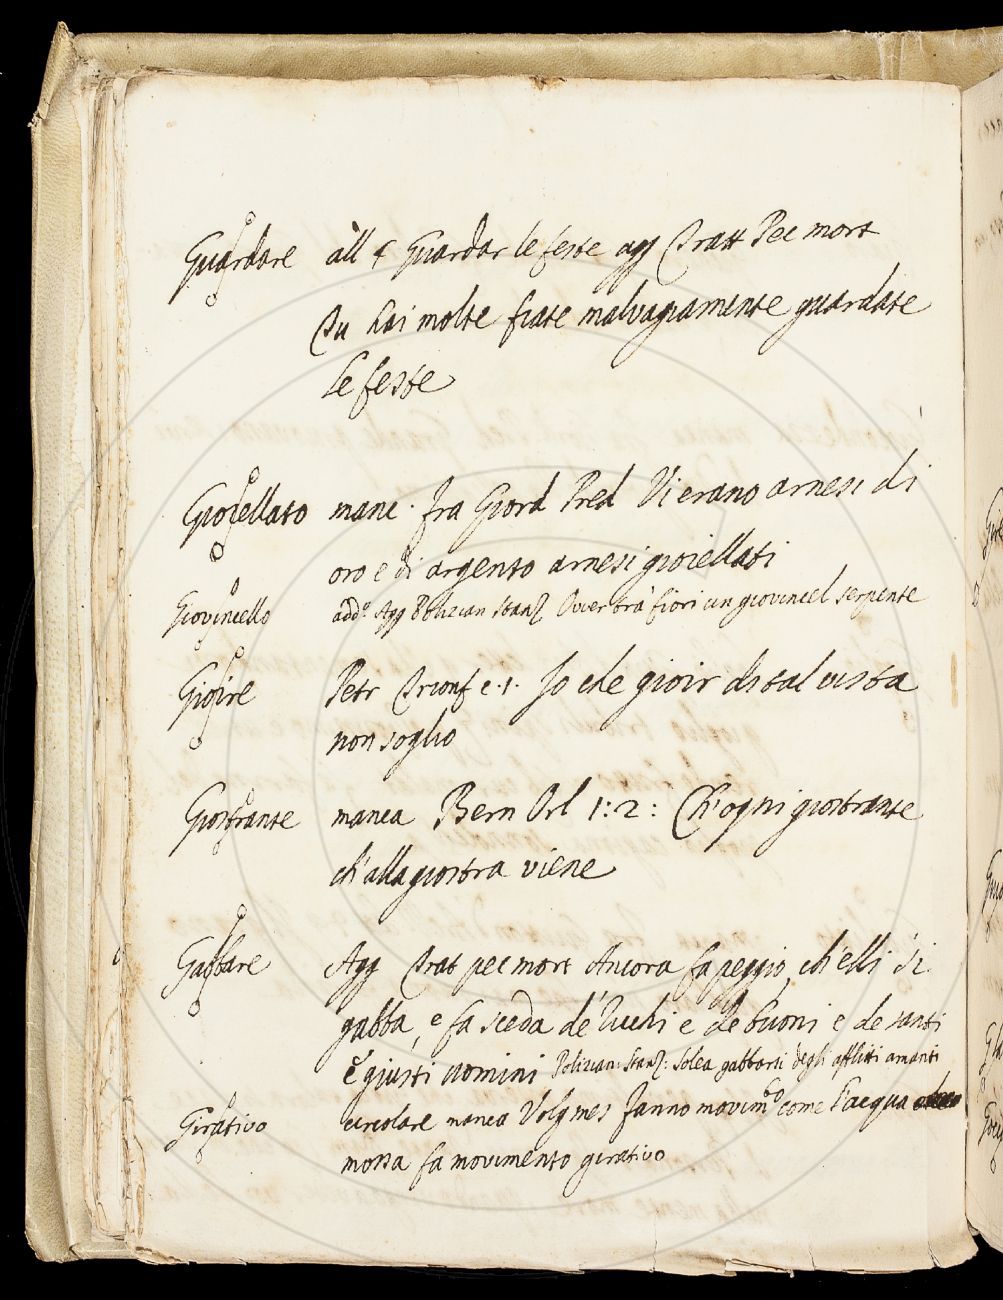 Guardare àll § Guardar le feste agg Tratt Pec mort
Tu hai molte fiate malvagiamente guardate
le feste
Gioiellato manc. fra Giord Pred Vi erano arnesi di
oro e di argento arnesi gioiellati
Giovincello add.º Agg Polizian Stanz Over tra' fiori un giovincel serpente
Gioire Petr Trionf c. 1. Io che gioir di tal vista
non soglio
Giostrante manca Bern Orl 1: 2: Ch'ogni giostrante
ch'alla giostra viene
Gabbare Agg Trat pec mort Ancora fa peggio, ch'elli si
gabba, e fa sceda de' vecchi e de buoni e de santi
e giusti uomini Polizian: Stanz: Solea gabbarsi degli afflitti amanti
Girativo circolare manca Volg mes fanno movim.to come l'acqua
mossa fa movimento girativo